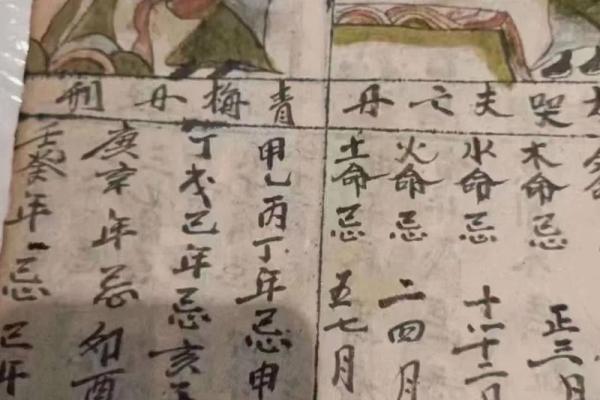 哭夫亡丹
木命忌正三月
水命忌十一十二月
火命忌二四月
土命忌五七月
青梅丹刑
甲乙丙丁年忌申
丁戊己年忌亥
庚辛年忌卯酉
壬癸年忌巳午